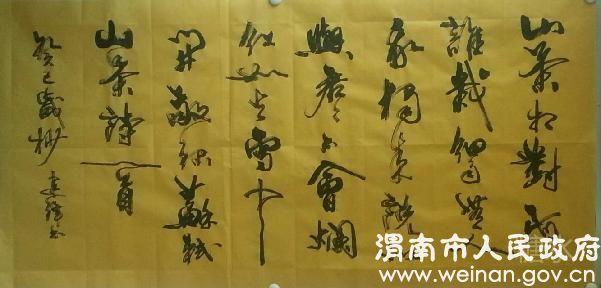 山茶相對阿
誰栽細雨無人
我獨來說似
與君君不會爛
紅如火雪中
開敬録蘇軾
山茶詩一首
癸巳歲 建 書
渭南市人民政府
www.weinan.gov.cn